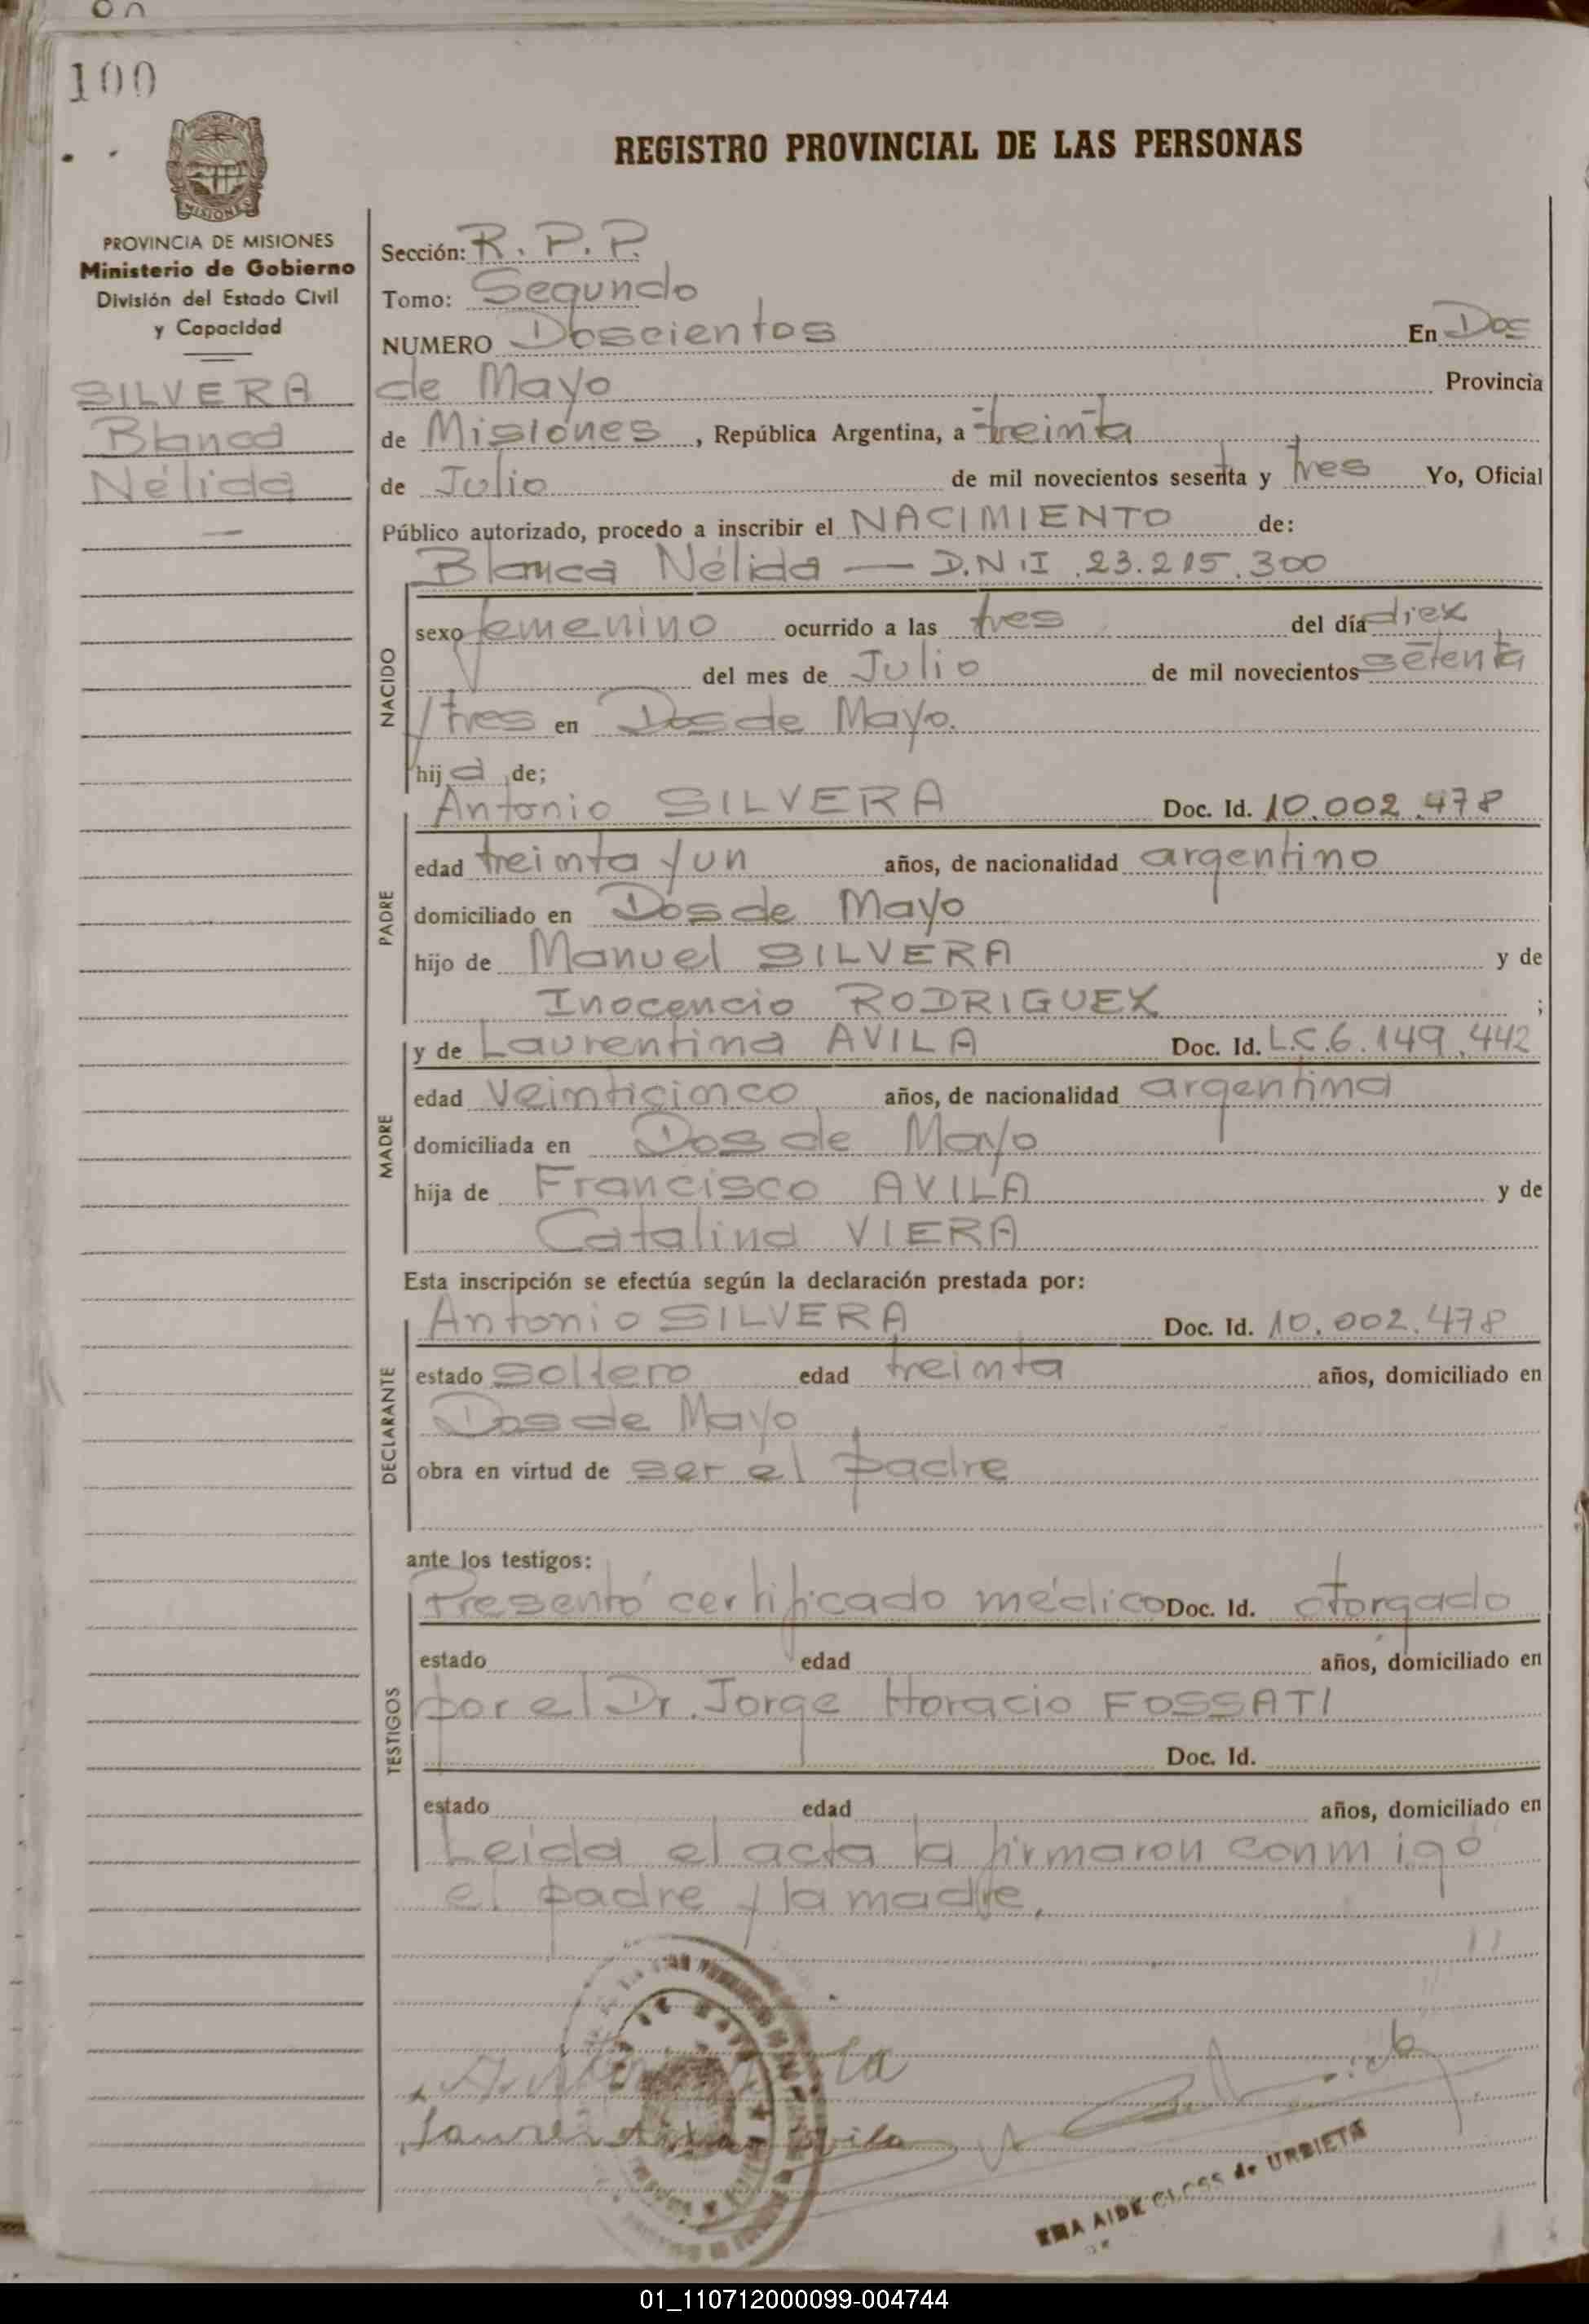 100
REGISTRO PROVINCIAL DE LAS PERSONAS
MISIONES
PROVINCIA DE MISIONES
Ministerio de Gobierno
División del Estado Civil
y Capacidad
SILVERA
Blanca
Nélida
Sección: R. P. P.
Tomo: Segundo
NUMERO Doscientos En Dos
de Mayo Provincia
de Misiones, República Argentina, a treinta
de Julio de mil novecientos sesenta y tres Yo, Oficial
Público autorizado, procedo a inscribir el NACIMIENTO de:
Blanca Nélida — D.N.I. 23.215.300
NACIDO
sexo femenino ocurrido a las tres del día diez
del mes de Julio de mil novecientos setenta
y tres en Dos de Mayo.
hija de;
PADRE
Antonio SILVERA Doc. Id. 10.002.478
edad treinta y un años, de nacionalidad argentino
domiciliado en Dos de Mayo
hijo de Manuel SILVERA y de
Inocencio RODRIGUEZ ;
MADRE
y de Laurentina AVILA Doc. Id. L.C.6.149.442
edad veinticinco años, de nacionalidad argentina
domiciliada en Dos de Mayo
hija de Francisco AVILA y de
Catalina VIERA
Esta inscripción se efectúa según la declaración prestada por:
DECLARANTE
Antonio SILVERA Doc. Id. 10.002.478
estado soltero edad treinta años, domiciliado en
Dos de Mayo
obra en virtud de ser el padre
ante los testigos:
TESTIGOS
Presentó certificado médico Doc. Id. otorgado
estado edad años, domiciliado en
por el Dr. Jorge Horacio FOSSATI
Doc. Id.
estado edad años, domiciliado en
Leida el acta la firmaron conmigo
el padre y la madre.
Laurentina Avila
EMA AIDE de URBIETA
01_110712000099-004744